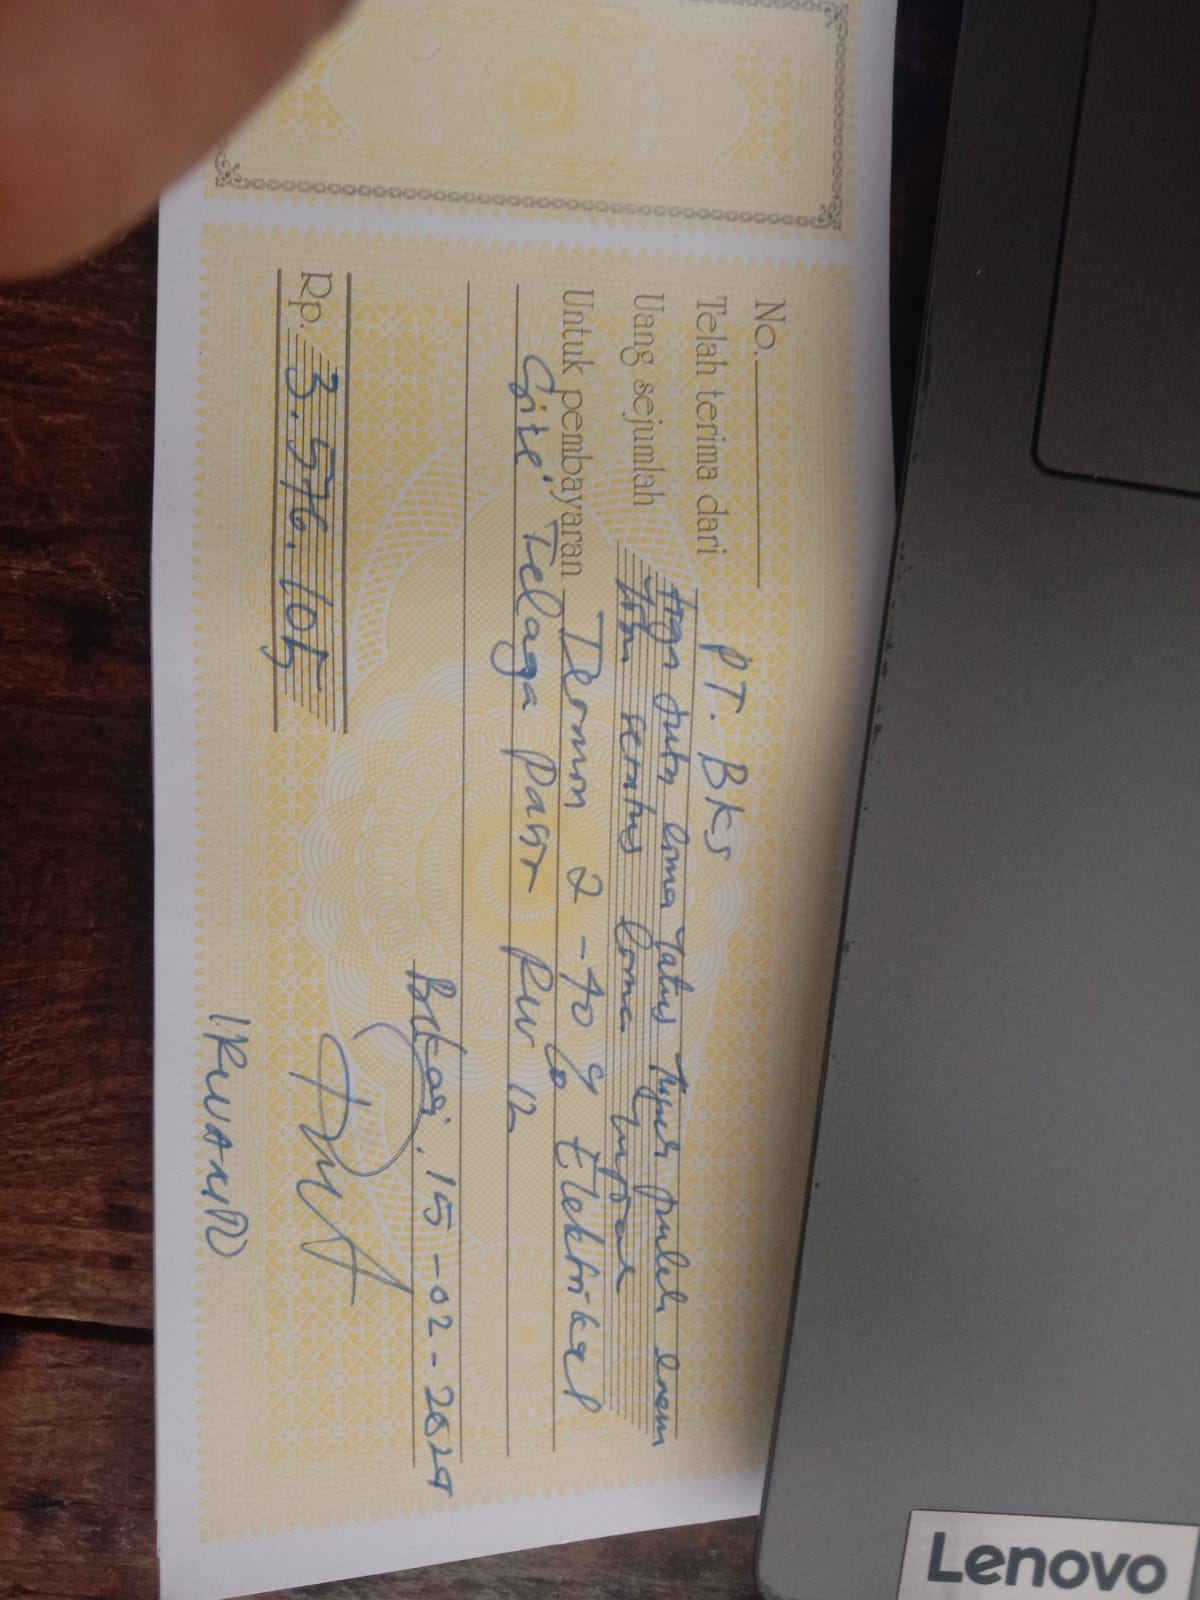 No.
Telah terima dari PT. BKS
Uang sejumlah tiga juta lima ratus tujuh puluh enam
ribu seratus lima rupiah
Untuk pembayaran Termin 2 - 40% Elektrikal
Site' Telaga Pasir RW 12
Bekasi. 15 - 02 - 2024
Rp. 3.576.105
IRWANTO
Lenovo